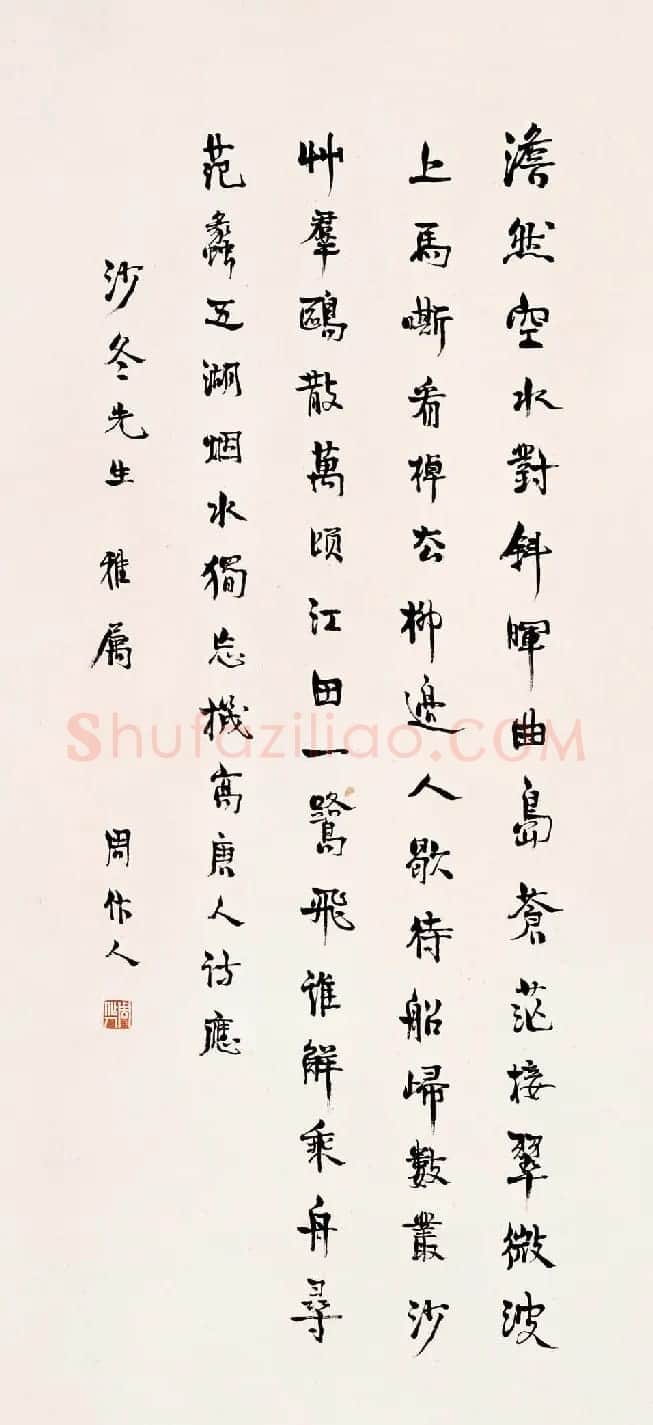 澹然空水對斜暉曲島蒼茫接翠微波
上馬嘶看棹去柳邊人歇待船歸數叢沙
艸羣鷗散萬頃江田一鷺飛誰解乘舟尋
范蠡五湖烟水獨忘機寫唐人詩應
沙冬先生 雅屬 周作人
Shufaziliao.COM